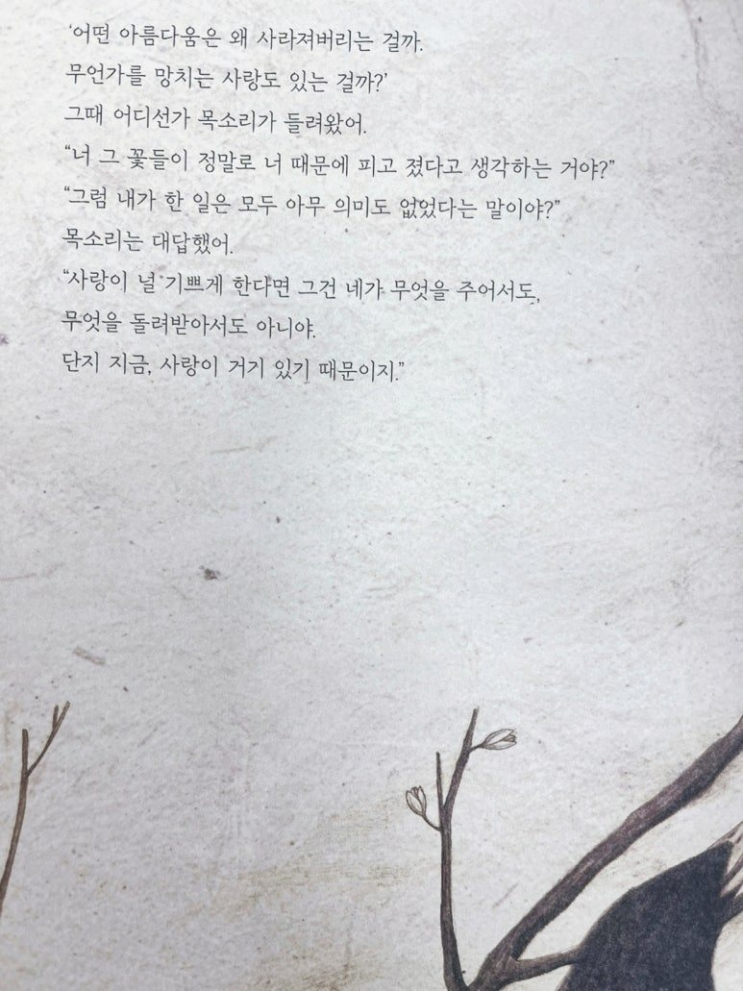 ‘어떤 아름다움은 왜 사라져버리는 걸까.
무언가를 망치는 사랑도 있는 걸까?’
그때 어디선가 목소리가 들려왔어.
“너 그 꽃들이 정말로 너 때문에 피고 졌다고 생각하는 거야?”
“그럼 내가 한 일은 모두 아무 의미도 없었다는 말이야?”
목소리는 대답했어.
“사랑이 널 기쁘게 한다면 그건 네가 무엇을 주어서도,
무엇을 돌려받아서도 아니야.
단지 지금, 사랑이 거기 있기 때문이지.”